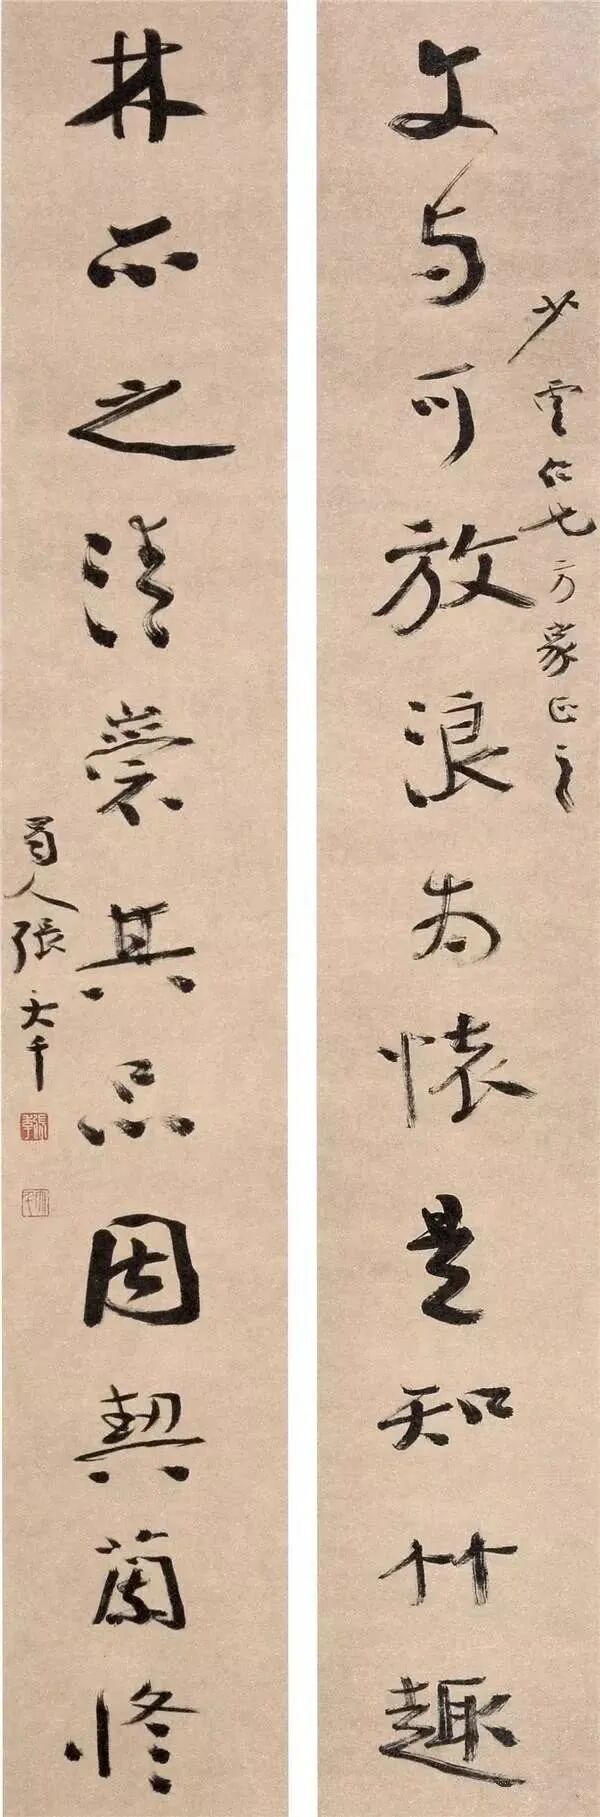 文与可放浪為懷是知竹趣
少雲仁兄方家正之
林之清其品因契蘭修
蜀人張大千
張爰
大千